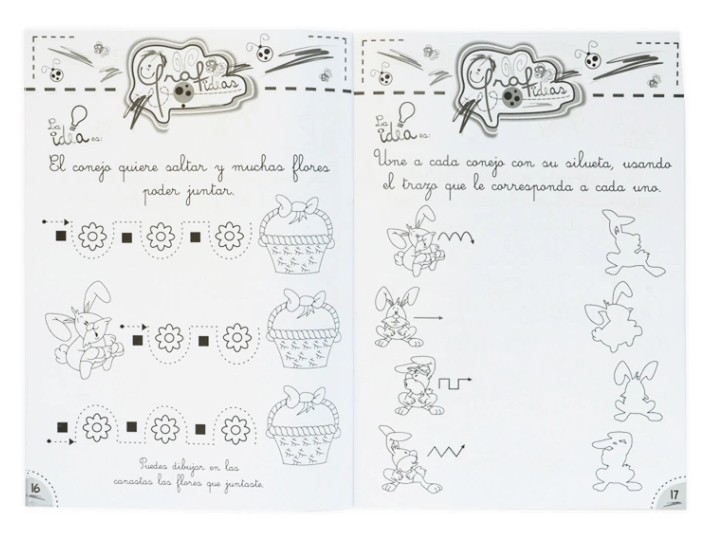 Grafideas
La idea es:
El conejo quiere saltar y muchas flores
poder juntar.
Puedes dibujar en las
canastas las flores que juntaste.
16
Grafideas
La idea es:
Une a cada conejo con su silueta, usando
el trazo que le corresponda a cada uno.
17